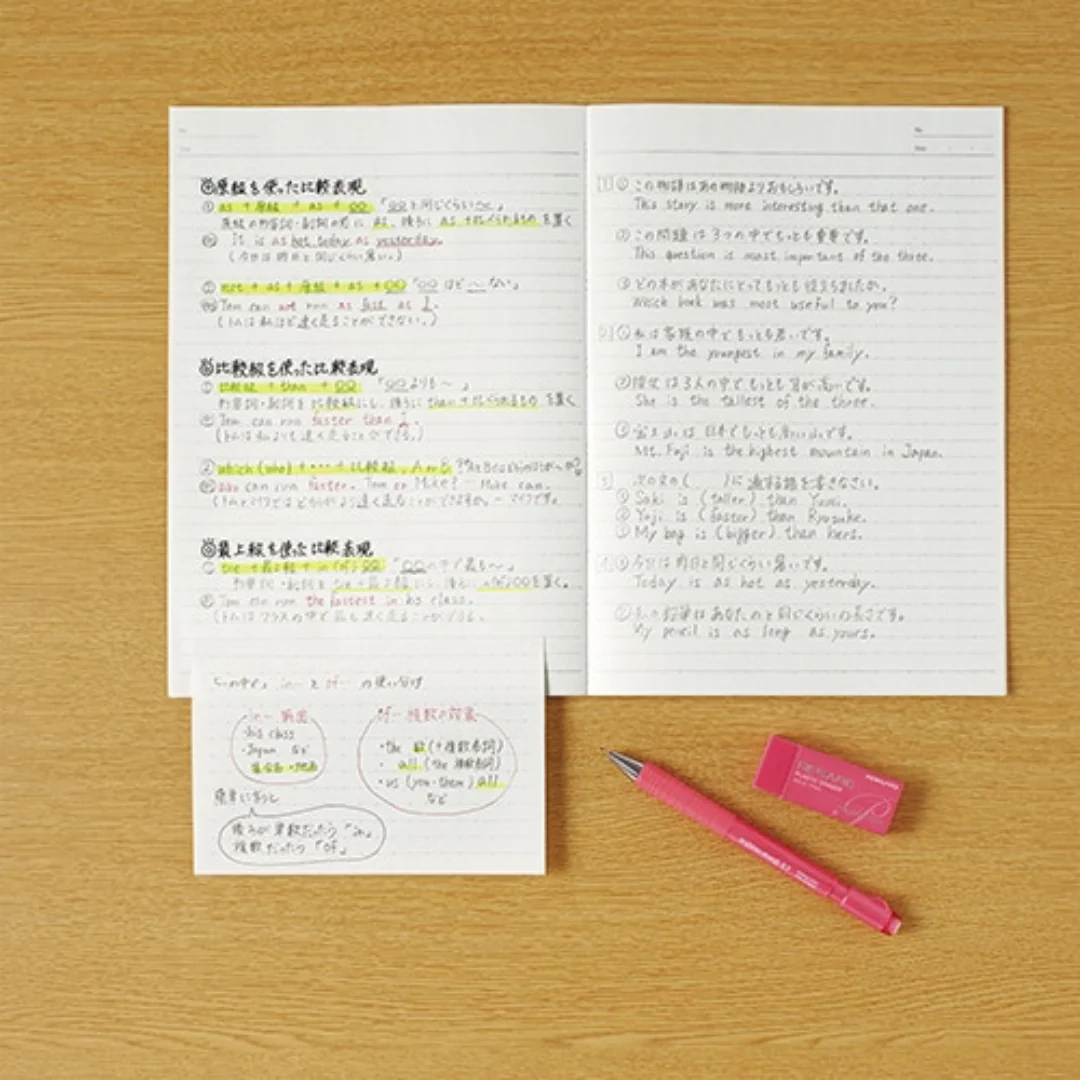 原級を使った比較表現
① as + 原級 + as + ○○ 「○○と同じくらい〜」
原級の形容詞・副詞の前に as、後ろに as + 比べられるもの を置く
例 It is as hot today as yesterday.
(今日は昨日と同じくらい暑い。)
② not + as + 原級 + as + ○○ 「○○ほど〜ない」
例 Tom can not run as fast as I.
(トムは私ほど速く走ることができない。)
比較級を使った比較表現
① 比較級 + than + ○○ 「○○よりも〜」
形容詞・副詞を比較級にし、後ろに than + 比べられるもの を置く
例 Tom can run faster than I.
(トムは私よりも速く走ることができる。)
② which (who) + ・・・ + 比較級, A or B ?
例 Who can run faster, Tom or Mike? – Mike can.
(トムとマイクではどちらがより速く走ることができますか。– マイクです。)
最上級を使った比較表現
① the + 最上級 + in (of) ○○ 「○○の中で最も〜」
形容詞・副詞を the + 最上級 にし、後ろに in(of)○○を置く。
例 Tom can run the fastest in his class.
(トムはクラスの中で最も速く走ることができる。)
「〜の中で」 in… と of… の使い分け
in… 範囲
・his class
・Japan など
of… 複数の
・the 数(+複数名詞)
・ all (the 複数名詞)
・us (you・them) all
など
簡単に言うと
後ろが単数だったら「in」
複数だったら「of」
No.
Date
1 ① この物語はあの物語よりおもしろいです。
This story is more interesting than that one.
② この問題は3つの中でもっとも重要です。
This question is most important of the three.
③ どの本があなたにとってもっとも役立ちましたか。
Which book was most useful to you?
2 ① 私は家族の中でもっとも若いです。
I am the youngest in my family.
② 彼女は3人の中でもっとも背が高いです。
She is the tallest of the three.
③ 富士山は日本でもっとも高い山です。
Mt. Fuji is the highest mountain in Japan.
3 次の文の( )に適する語を書きなさい。
① Saki is (taller) than Yumi.
② Yuji is (faster) than Ryosuke.
③ My bag is (bigger) than hers.
4 ① 今日は昨日と同じくらい暑いです。
Today is as hot as yesterday.
② 私の鉛筆はあなたのと同じくらいの長さです。
My pencil is as long as yours.
PLASTIC ERASER
KOKUYO